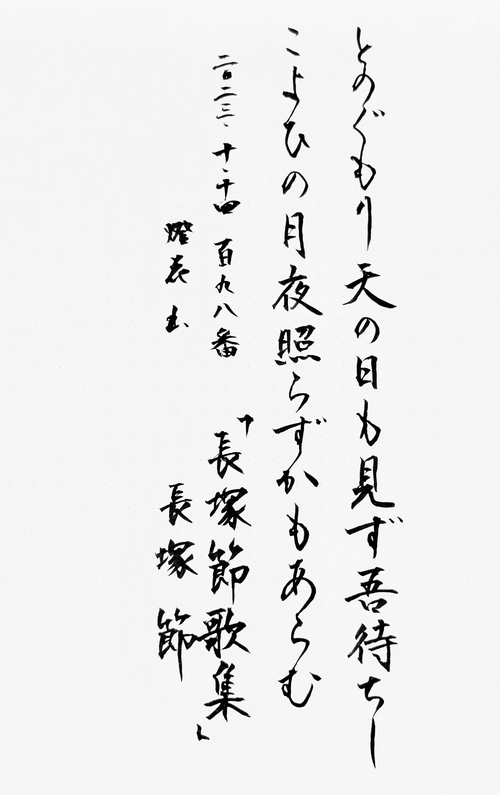 とのぐもり天の日も見ず吾待ちし
こよひの月夜照らずかもあらむ
二〇二三、十、十四 百九八番
『長塚節歌集』
長塚 節